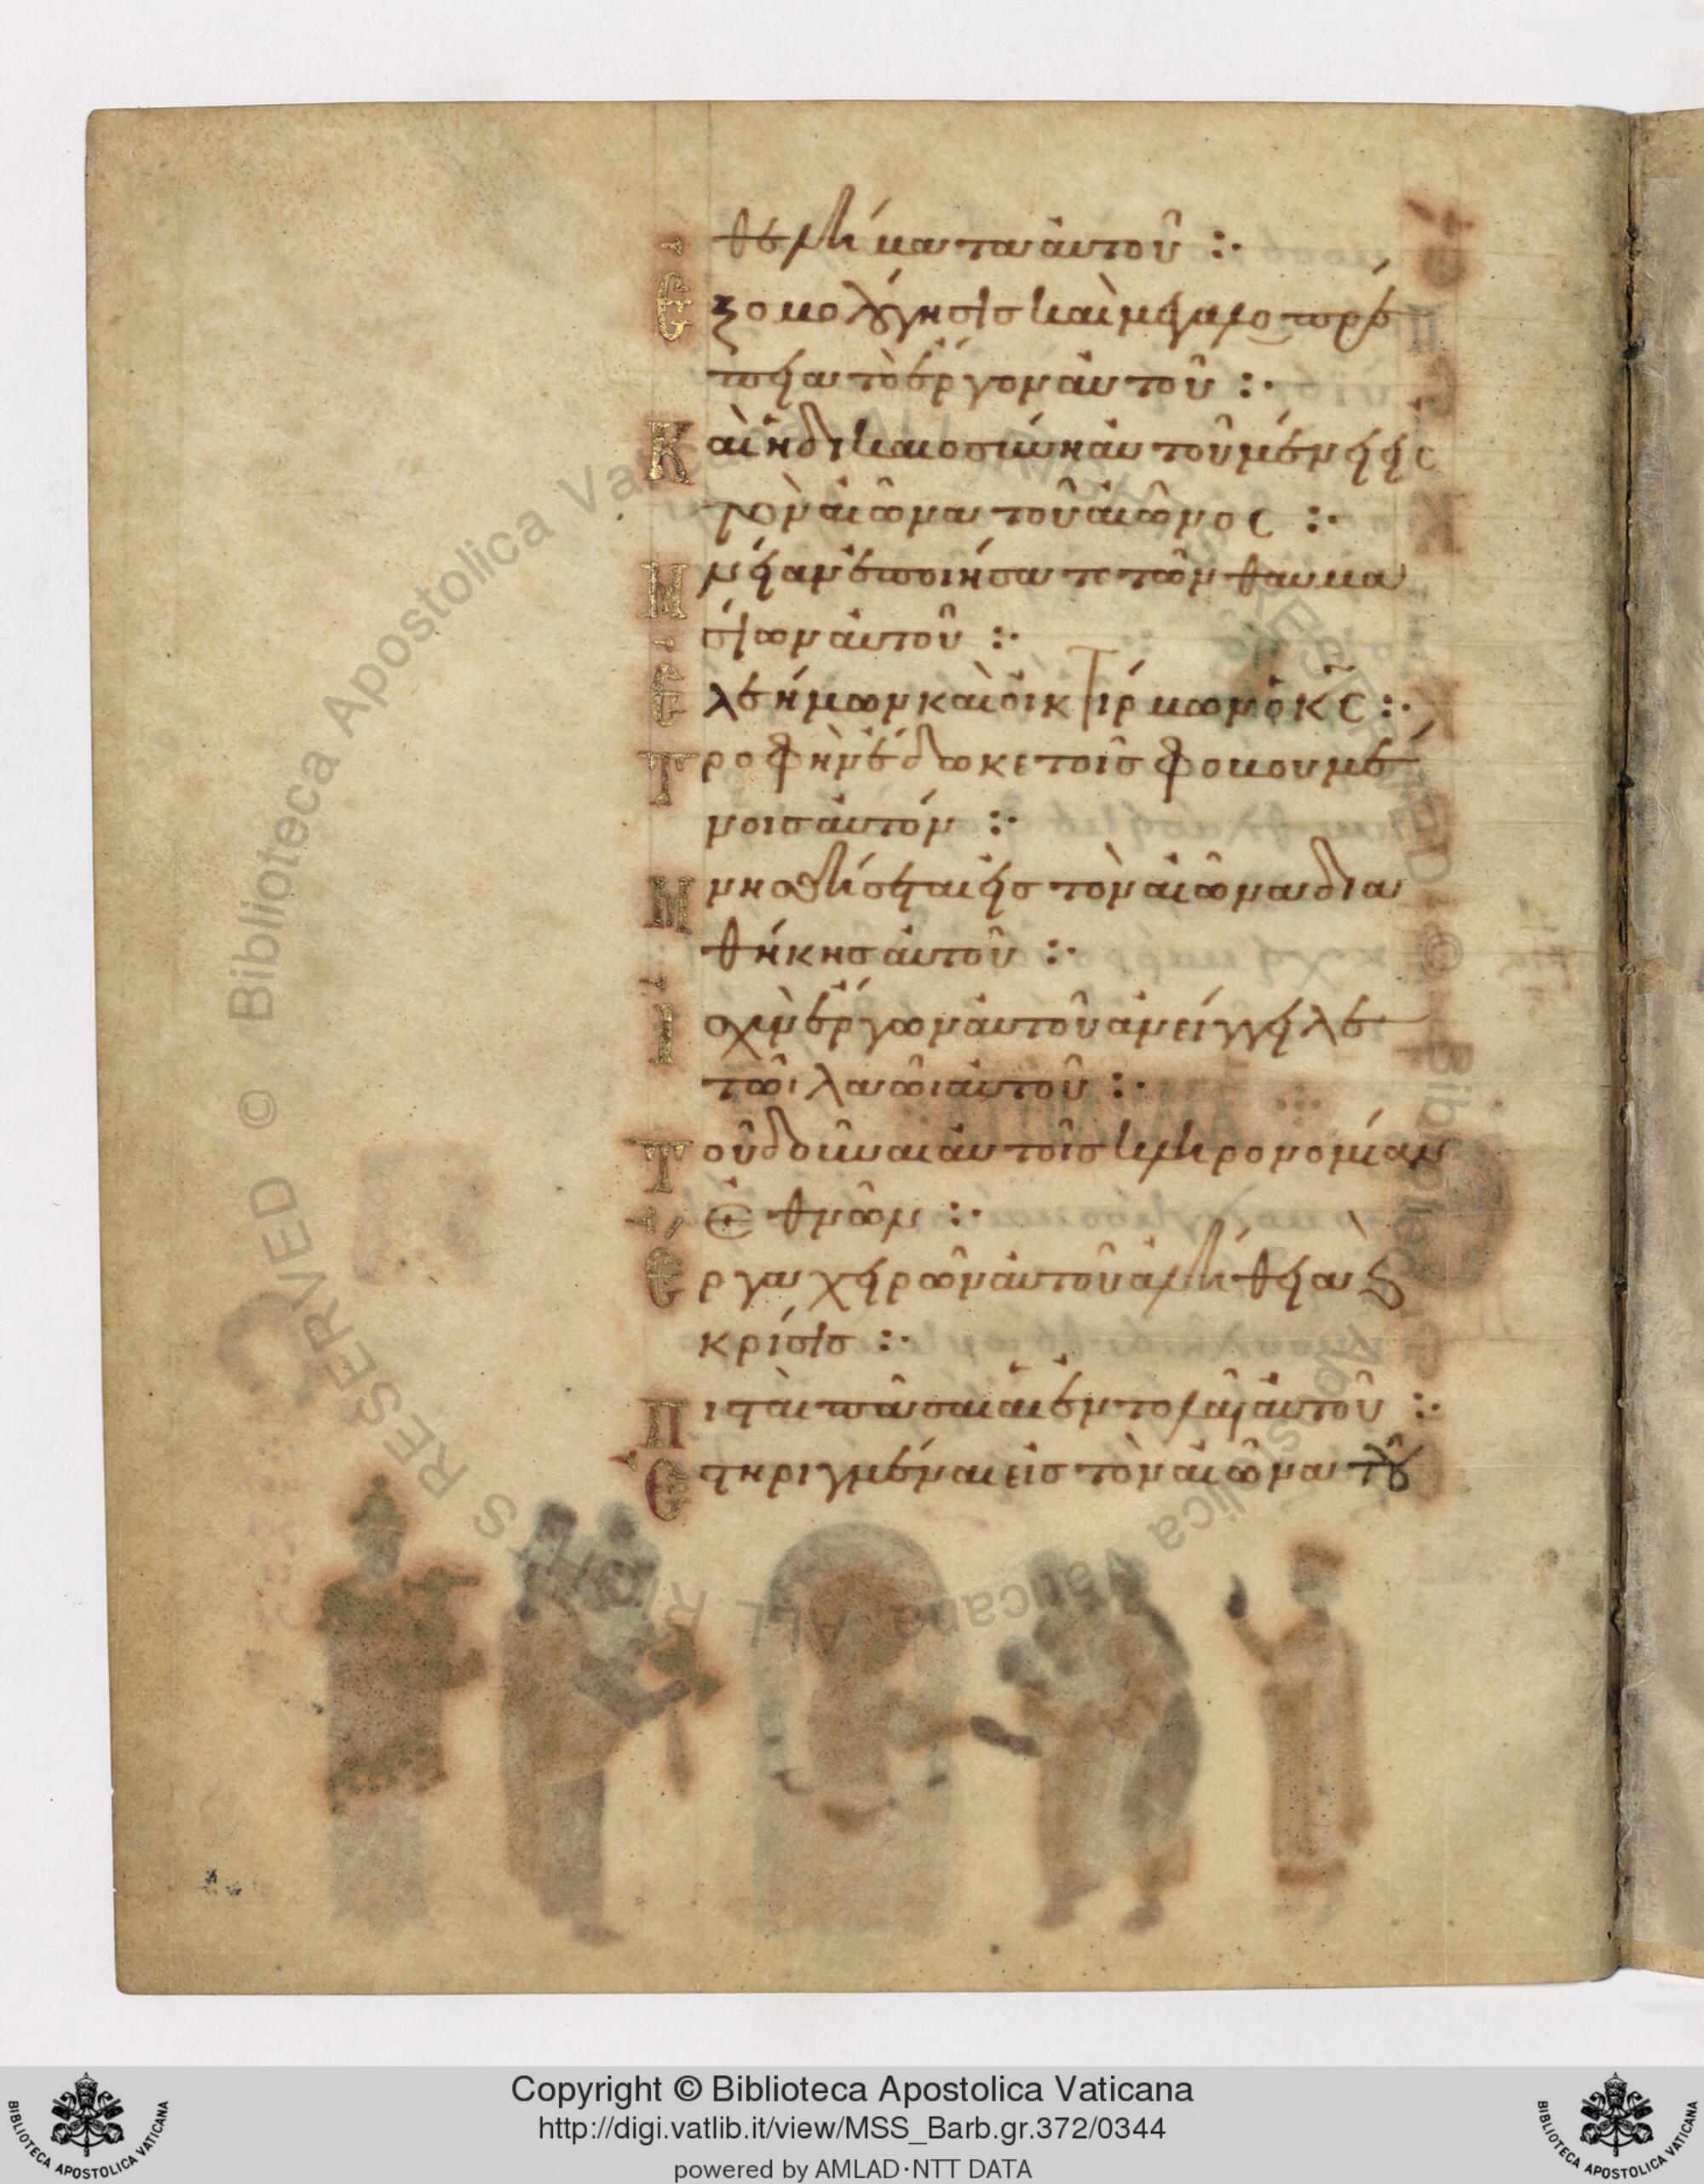 θελήματα αὐτοῦ :·
Ἐξομολόγησις καὶ μεγαλοπρέ
πεια τὸ ἔργον αὐτοῦ :·
Καὶ ἡ δικαιοσύνη αὐτοῦ μένει εἰς
τὸν αἰῶνα τοῦ αἰῶνος :·
Μνείαν ἐποιήσατο τῶν θαυμα
σίων αὐτοῦ :·
Ἐλεήμων καὶ οἰκτίρμων ὁ κ̅ς̅ :·
Τροφὴν ἔδωκε τοῖς φοβουμέ
νοις αὐτόν :·
Μνησθήσεται εἰς τὸν αἰῶνα δια
θήκης αὐτοῦ :·
Ἰσχὺν ἔργων αὐτοῦ ἀνείγγειλε
τῶι λαῶι αὐτοῦ :·
Τοῦ δοῦναι αὐτοῖς κληρονομίαν
ἐθνῶν :·
Ἔργα χειρῶν αὐτοῦ ἀλήθεια ϗ
κρίσις :·
Πισταὶ πᾶσαι αἱ ἐντολαὶ αὐτοῦ :·
Ἐστηριγμέναι εἰς τὸν αἰῶνα τοῦ
BIBLIOTECA APOSTOLICA VATICANA
Copyright © Biblioteca Apostolica Vaticana
http://digi.vatlib.it/view/MSS_Barb.gr.372/0344
powered by AMLAD·NTT DATA
BIBLIOTECA APOSTOLICA VATICANA
© Biblioteca Apostolica Vaticana ALL RIGHTS RESERVED
© Biblioteca Apostolica Vaticana ALL RIGHTS RESERVED